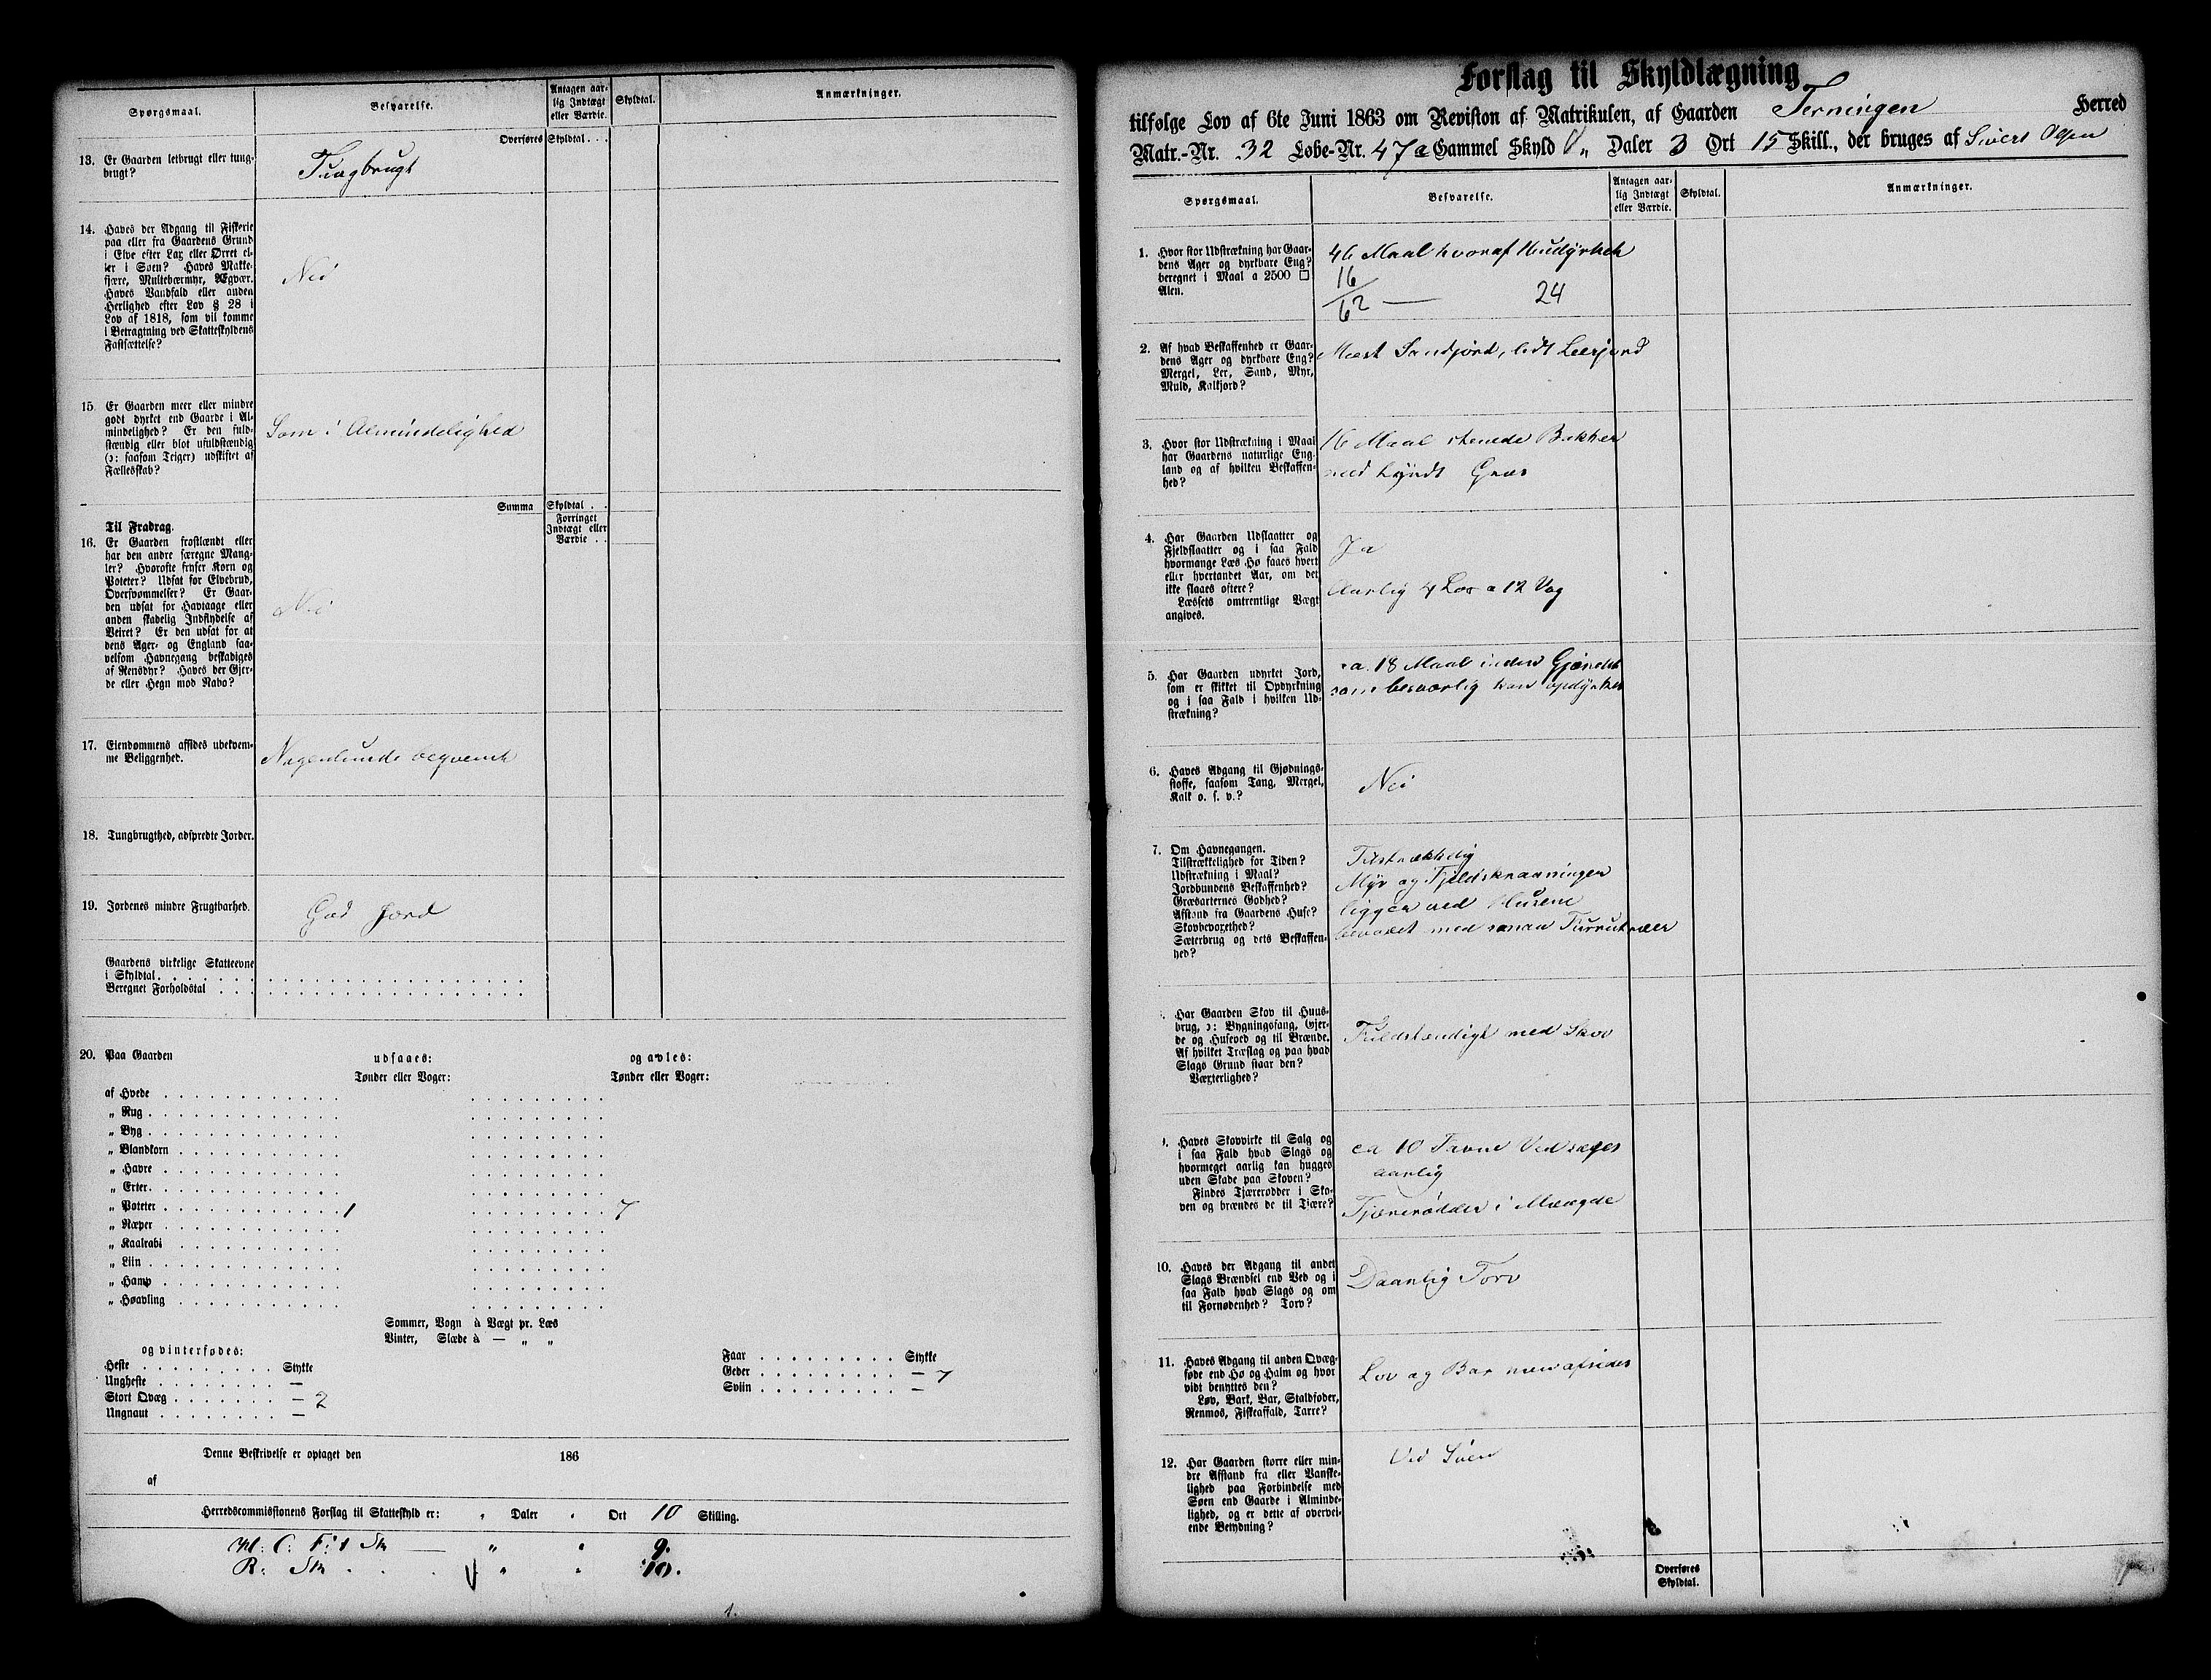 Spørgsmaal.
Besvarelse.
Antagen aar-
lig Indtægt
eller Værdie.
Skyldtal.
Anmærkninger.
Overføres Skyldtal . . .
13. Er Gaarden letbrugt eller tung-
brugt?
Tungbrugt
14. Haves der Adgang til Fiskerie
paa eller fra Gaardens Grund
i Elve efter Lax eller Ørret el-
ler i Søen? Haves Makke-
fjære, Multebærmyr, Ægvær.
Haves Vandfald eller anden
Herlighed efter Lov § 28 i
Lov af 1818, som vil komme
i Betragtning ved Skatteskyldens
Fastsættelse?
Nei
15. Er Gaarden meer eller mindre
godt dyrket end Gaarde i Al-
mindelighed? Er den fuld-
stændig eller blot ufuldstændig
(ɔ: saasom Teiger) udskiftet af
Fællesskab?
Som i Almindelighed
Summa Skyldtal . .
Forringet
Indtægt eller
Værdie . .
Til Fradrag.
16. Er Gaarden frostlændt eller
har den andre særegne Mang-
ler? Hvorofte fryser Korn og
Poteter? Udsat for Elvebrud,
Oversvømmelser? Er Gaar-
den udsat for Havtaage eller
anden skadelig Indflydelse af
Veiret? Er den udsat for at
dens Ager- og England saa-
velsom Havnegang beskadiges
af Rensdyr? Haves der Gjer-
de eller Hegn mod Nabo?
Nei
17. Eiendommens afsides ubekvem-
me Beliggenhed.
Nogenlunde beqvemt
18. Tungbrugthed, adspredte Jorder.
19. Jordenes mindre Frugtbarhed.
God Jord
Gaardens virkelige Skatteevne
i Skyldtal . . . . . .
Beregnet Forholdstal . . .
20. Paa Gaarden
udsaaes:
og avles:
Tønder eller Voger:
Tønder eller Voger:
af Hvede
„ Rug
„ Byg
„ Blandkorn
„ Havre
„ Erter
„ Poteter 1 7
„ Næper
„ Kaalrabi
„ Liin
„ Hamp
„ Høavling
Sommer, Vogn à Vægt pr. Læs
Vinter, Slæde à — „ „
og vinterfødes:
Heste . . . Stykke
Ungheste . . . —
Stort Qvæg . . . — 2
Ungnaut . . . —
Faar . . . Stykke
Geder . . . — 7
Sviin . . . —
Denne Beskrivelse er optaget den 186
af
Herredscommissionens Forslag til Skatteskyld er: „ Daler „ Ort 10 Skilling.
M: C: F: t Sk — „ „ 9.
R: Sk . . . „ „ 10.
1.
Forslag til Skyldlægning
tilfølge Lov af 6te Juni 1863 om Revision af Matrikulen, af Gaarden Terningen Herred
Matr.-Nr. 32 Løbe-Nr. 47a Gammel Skyld „ Daler 3 Ort 15 Skill., der bruges af Sivert Olsen
Spørgsmaal.
Besvarelse.
Antagen aar-
lig Indtægt
eller Værdie.
Skyldtal.
Anmærkninger.
1. Hvor stor Udstrækning har Gaar-
dens Ager og dyrkbare Eng?
beregnet i Maal a 2500 □
Alen.
46 Maal hvoraf
16
62 — 24
2. Af hvad Beskaffenhed er Gaar-
dens Ager og dyrkbare Eng?
Mergel, Ler, Sand, Myr,
Muld, Kalkjord?
Mest Sandjord, lidt Leerjord
3. Hvor stor Udstrækning i Maal
har Gaardens naturlige Eng-
land og af hvilken Beskaffen-
hed?
16 Maal stenede Bakker
med tyndt Græs
4. Har Gaarden Udslaatter og
Fjeldslaatter og i saa Fald
hvormange Læs Hø faaes hvert
eller hvertandet Aar, om det
ikke slaaes oftere?
Læssets omtrentlige Vægt
angives.
Ja
Aarlig 4 Læs a 12 Vog
5. Har Gaarden udyrket Jord,
som er skikket til Opdyrkning
og i saa Fald i hvilken Ud-
strækning?
ca. 18 Maal inden Gjærdet
som besværlig kan opdyrkes
6. Haves Adgang til Gjødnings-
stoffe, saasom Tang, Mergel,
Kalk o. s. v.?
Nei
7. Om Havnegangen.
Tilstrækkelighed for Tiden?
Udstrækning i Maal?
Jordbundens Beskaffenhed?
Græsarternes Godhed?
Afstand fra Gaardens Huse?
Skovbevoxethed?
Sæterbrug og dets Beskaffen-
hed?
Tilstrækkelig
Myr og Fjeldskraaninger
ligger ved Husene
bevoxet med smaa Furrutræer
Har Gaarden Skov til Huus-
brug, ɔ: Bygningsfang, Gjer-
de og Huseved og til Brænde.
Af hvilket Træslag og paa hvad
Slags Grund staar den?
Væxterlighed?
Fuldstændigt med Skov
Haves Skovvirke til Salg og
i saa Fald hvad Slags og
hvormeget aarlig kan hugges
uden Skade paa Skoven?
Findes Tjærerødder i Sko-
ven og brændes de til Tjære?
ca 10 Favne Ved sælges
aarlig
Tjærerødder i Mængde
10. Haves der Adgang til andet
Slags Brændsel end Ved og i
saa Fald hvad Slags og om
til Fornødenhed? Torv?
Daarlig Torv
11. Haves Adgang til anden Qvæg-
føde end Hø og Halm og hvor
vidt benyttes den?
Løv, Bark, Bar, Staldføder,
Renmos, Fiskeaffald, Tarre?
Løv og Bar men afsides
12. Har Gaarden større eller min-
dre Afstand fra eller Vanske-
lighed paa Forbindelse med
Søen end Gaarde i Alminde-
lighed, og er dette af overvei-
ende Betydning?
Ved Søen
Overføres
Skyldtal.